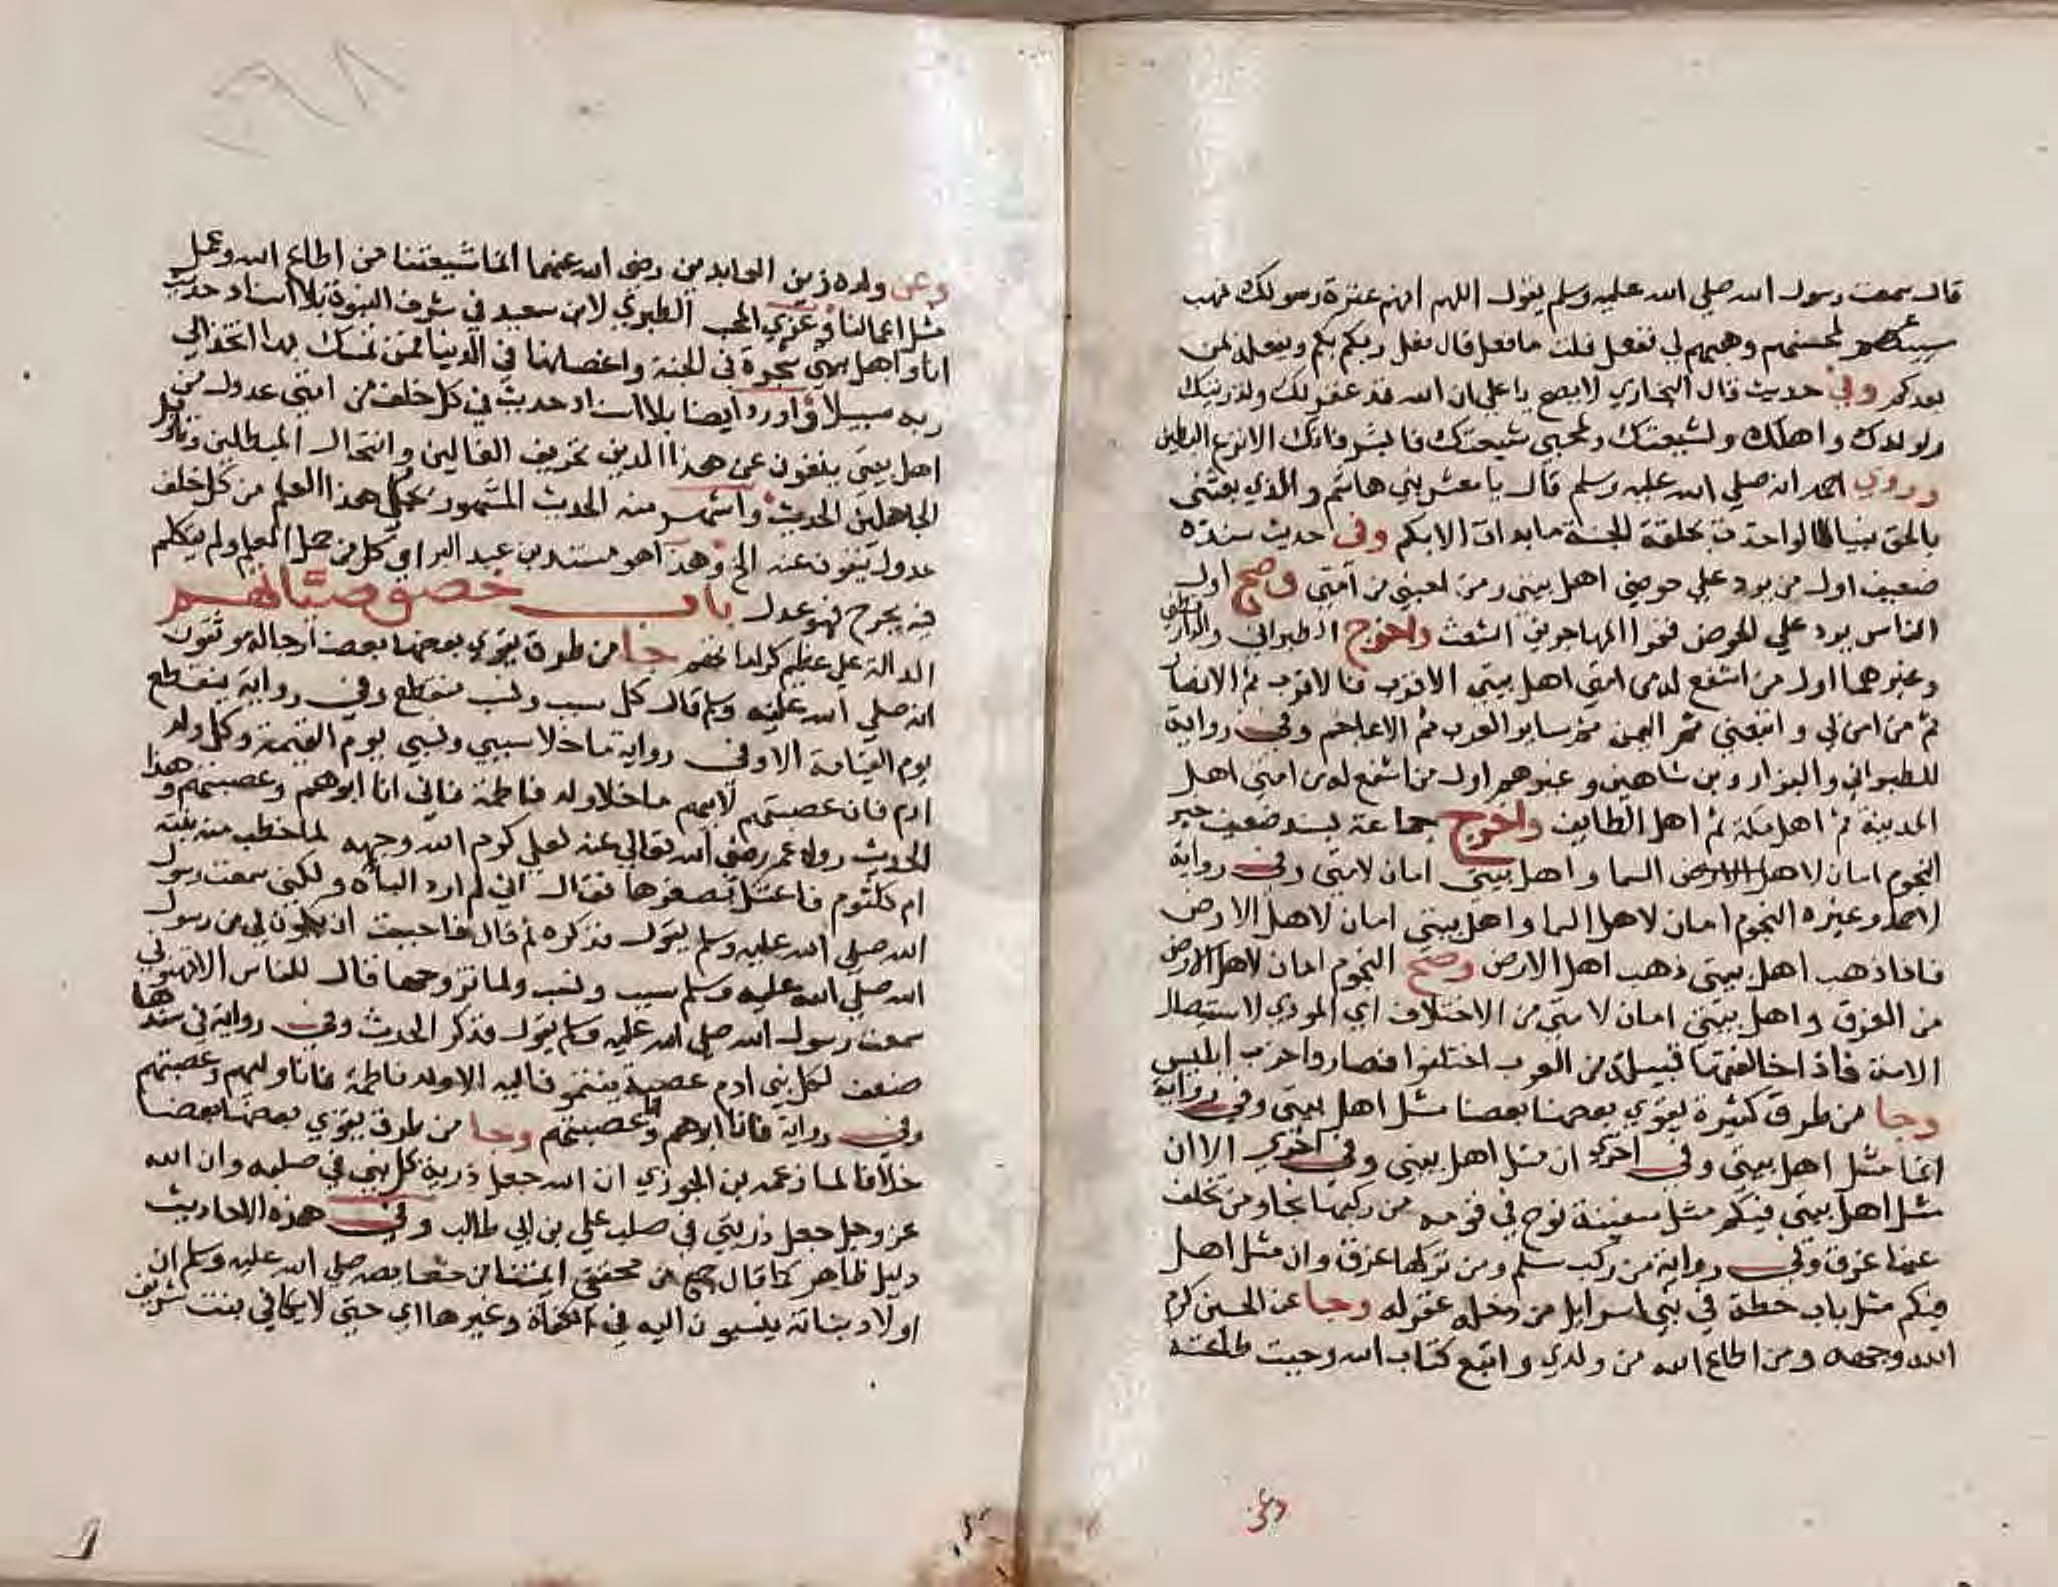 قال سمعت رسول الله صلي الله عليه وسلم يقول اللهم انهم عترة رسولك فهب
مسيئهم لمحسنهم وهبهم لي ففعل قلت ما فعل قال فعل ربكم بكم ويفعله لمن
بعدكم وفي حديث قال البخاري لا يصح يا علي ان الله قد غفر لك ولذريتك
ولولدك واهلك ولشيعتك ولمحبي شيعتك فابشر فانك الانزع البطين
وروي احمد انه صلي الله عليه وسلم قال يا معشر بني هاشم والذي بعثني
بالحق نبيا لو اخذت بحلقة الجنة ما بدات الا بكم وفي حديث سنده
ضعيف اول من يرد علي حوضي اهل بيتي ومن احبني من امتي وصح اول
الناس يرد علي الحوض فقرا المهاجرين الشعث واخرج الطبراني والدارقطني
وغيرهما اول من اشفع له من امتي اهل بيتي الاقرب فالاقرب ثم الانصار
ثم من امن بي واتبعني ثم اليمن ثم ساير العرب ثم الاعاجم وفي رواية
للطبراني والبزار وبن شاهين وغيرهم اول من اشفع له من امتي اهل
المدينة ثم اهل مكة ثم اهل الطايف واخرج جماعة بسند ضعيف خبر
النجوم امان لاهل السما واهل بيتي امان لامتي وفي رواية
لاحمد وغيره النجوم امان لاهل السما واهل بيتي امان لاهل الارض
فاذا ذهب اهل بيتي ذهب اهل الارض وصح النجوم امان لاهل الارض
من الغرق واهل بيتي امان لامتي من الاختلاف اي المودي لاستيصال
الامة فاذا خالفتها قبيلة من العرب اختلفوا فصاروا حزب ابليس
وجا من طرق كثيرة يقوي بعضها بعضا مثل اهل بيتي وفي رواية
انما مثل اهل بيتي وفي اخري ان مثل اهل بيتي وفي اخري الا ان
مثل اهل بيتي فيكم مثل سفينة نوح في قومه من ركبها نجا ومن تخلف
عنها غرق وفي رواية من ركب سلم ومن تركها غرق وان مثل اهل
فيكم مثل باب حطة في بني اسرايل من دخله غفر له وجا عن الحسن كرم
الله وجهه ومن اطاع الله من ولدي واتبع كتاب الله وجبت طاعته
وعن
وعن ولده زين العابدين رضي الله عنهما انما شيعتنا من اطاع الله وعمل
مثل اعمالنا وعزي المحب الطبري لابن سعيد في شرف النبوة بلا اسناد حديث
انا واهل بيتي شجرة في الجنة واغصانها في الدنيا فمن تمسك بها اتخذ الي
ربه سبيلا واورد ايضا بلا اسناد حديث في كل خلف من امتي عدول من
اهل بيتي ينفون عن هذا الدين تحريف الغالين وانتحال المبطلين وتاويل
الجاهلين الحديث واشهر منه الحديث المشهور يحمل هذا العلم من كل خلف
عدوله ينفون عنه الخ وهذا هو مستند بن عبد البر اي كل من حمل العلم ولم يتكلم
فيه بجرح فهو عدل باب خصوصياتهم
الدالة علي عظيم كراماتهم جا من طرق يقوي بعضها بعضا رجاله موثقون
انه صلي الله عليه وسلم قال كل سبب ونسب منقطع وفي رواية ينقطع
يوم القيامة الا وفي رواية ما خلا سببي ونسبي يوم القيمة وكل ولد
ادم فان عصبتهم لابيهم ما خلا ولد فاطمة فاني انا ابوهم وعصبتهم وهذا
الحديث رواه عمر رضي الله تعالي عنه لعلي كرم الله وجهه لما خطب منه بنته
ام كلثوم فاعتل بصغرها فقال اني لم ارد الباه ولكني سمعت رسول
الله صلي الله عليه وسلم يقول فذكره ثم قال فاحببت ان يكون لي من رسول
الله صلي الله عليه وسلم سبب ونسب ولما تزوجها قال للناس الا تهنوني
سمعت رسول الله صلي الله عليه وسلم يقول فذكر الحديث وفي رواية في سندها
ضعف لكل بني ادم عصبة ينتمو اليه الا ولد فاطمة فانا وليهم وعصبتهم
وفي رواية فانا ابوهم وعصبتهم وجا من طرق يقوي بعضها بعضا
خلافا لما زعمه بن الجوزي ان الله جعل ذرية كل نبي في صلبه وان الله
عز وجل جعل ذريتي في صلب علي بن ابي طالب وفي هذه الاحاديث
دليل ظاهر كما قال جمع من محققي ايمتنا من خصايصه صلي الله عليه وسلم ان
اولاد بناته ينسبون اليه في الكفاة وغيرها اي حتي لا يكافي بنت شريف